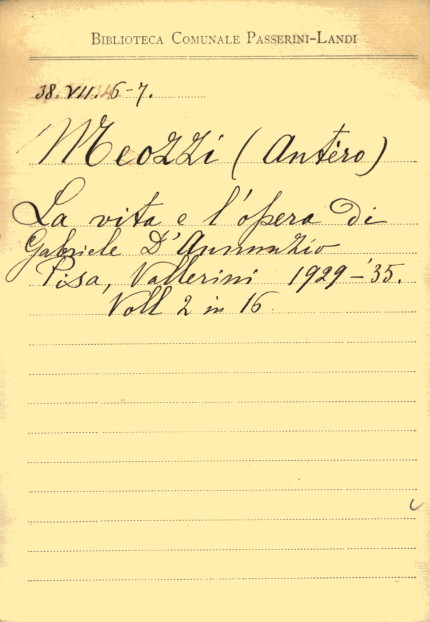 BIBLIOTECA COMUNALE PASSERINI-LANDI
38. VII. 6-7.
Meozzi (Antèro)
La vita e l'opera di
Gabriele D'Annunzio
Pisa, Vallerini 1929-'35.
Voll 2 in 16